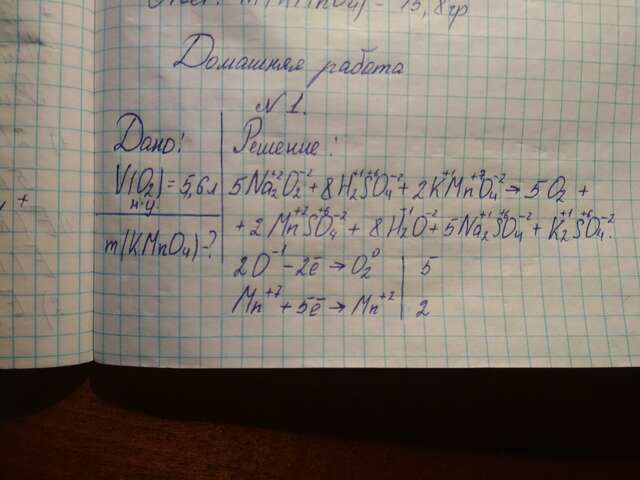 Ответ: m(KMnO4) = 15,8 гр
Домашняя работа
N 1.
Дано:
V(O2) = 5,6 л
н.у
m(KMnO4) - ?
Решение:
5Na2⁺²O2⁻² + 8H2⁺¹S⁺⁶O4⁻² + 2K⁺¹Mn⁺⁷O4⁻² → 5O2 +
+ 2Mn⁺²S⁺⁶O4⁻² + 8H2⁺¹O⁻² + 5Na2⁺¹S⁺⁶O4⁻² + K2⁺¹S⁺⁶O4⁻².
2O⁻¹ - 2ē → O2⁰ | 5
Mn⁺⁷ + 5ē → Mn⁺² | 2